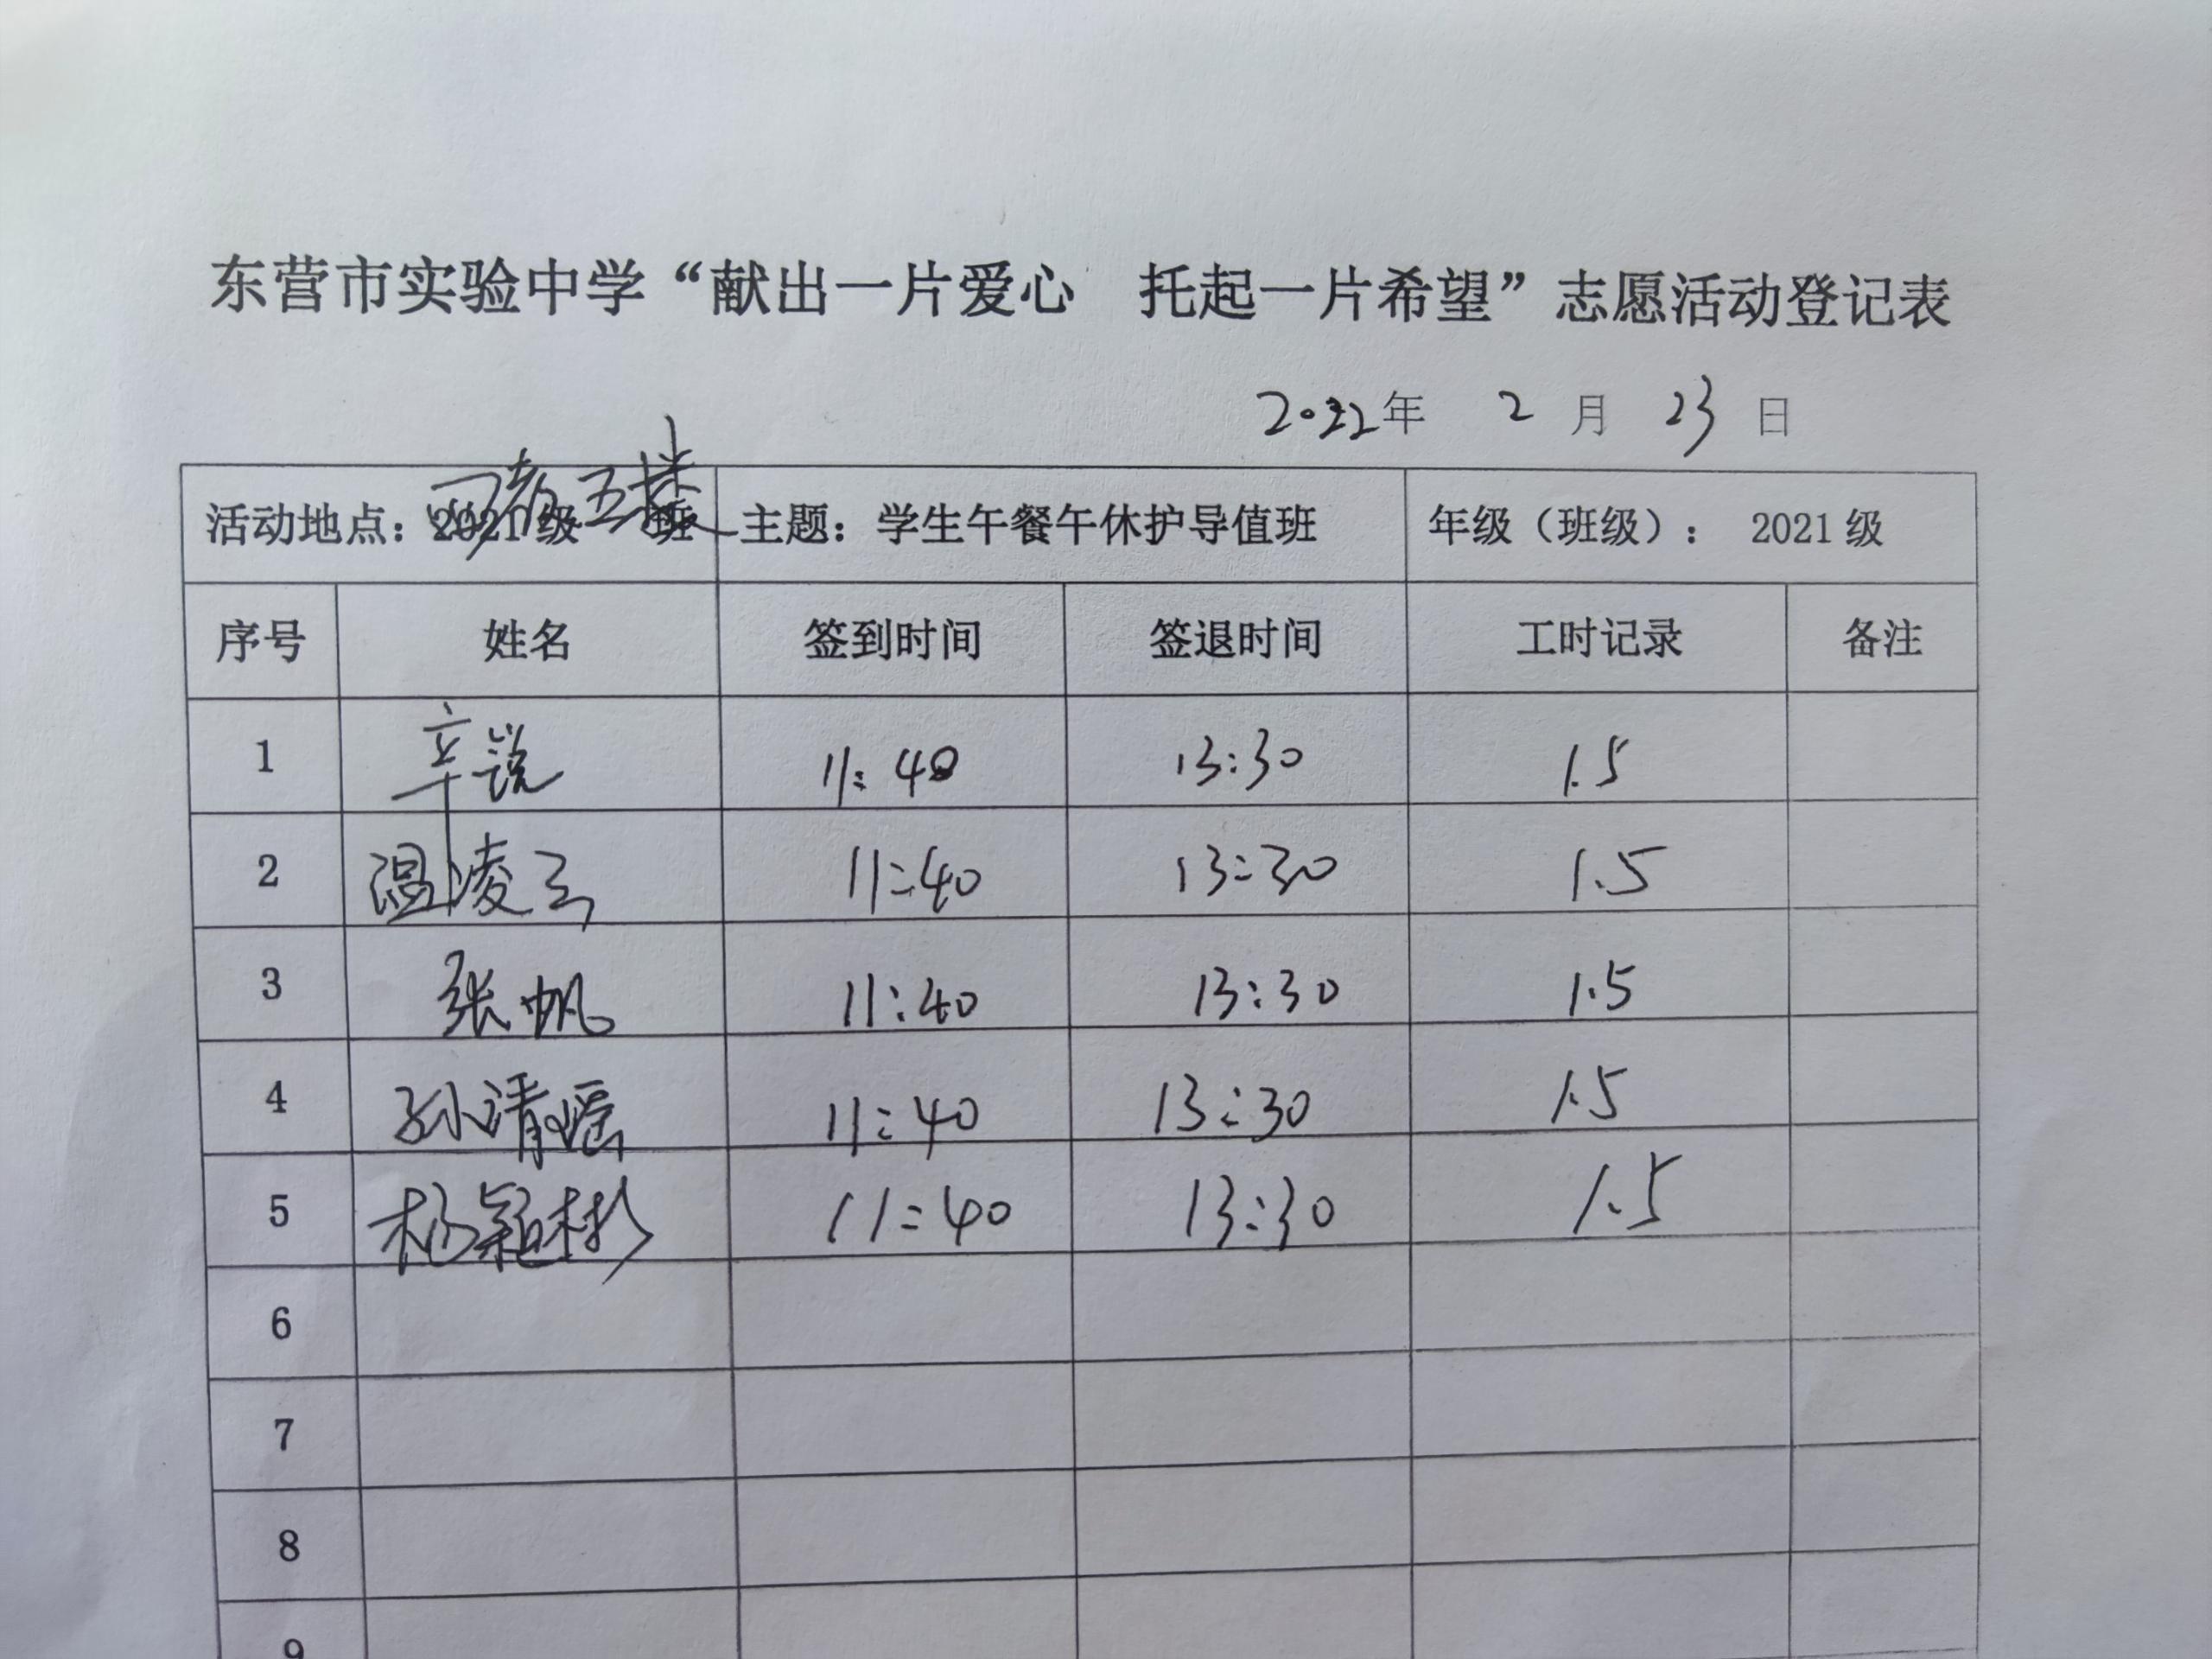 东营市实验中学“献出一片爱心 托起一片希望”志愿活动登记表
2022年 2 月 23 日
活动地点：2021级 班 五楼 主题：学生午餐午休护导值班 年级（班级）： 2021级
序号 姓名 签到时间 签退时间 工时记录 备注
1 辛锐 11:40 13:30 1.5
2 温凌云 11:40 13:30 1.5
3 张帆 11:40 13:30 1.5
4 孙清瑶 11:40 13:30 1.5
5 杨颖彬 11:40 13:30 1.5
6
7
8
9